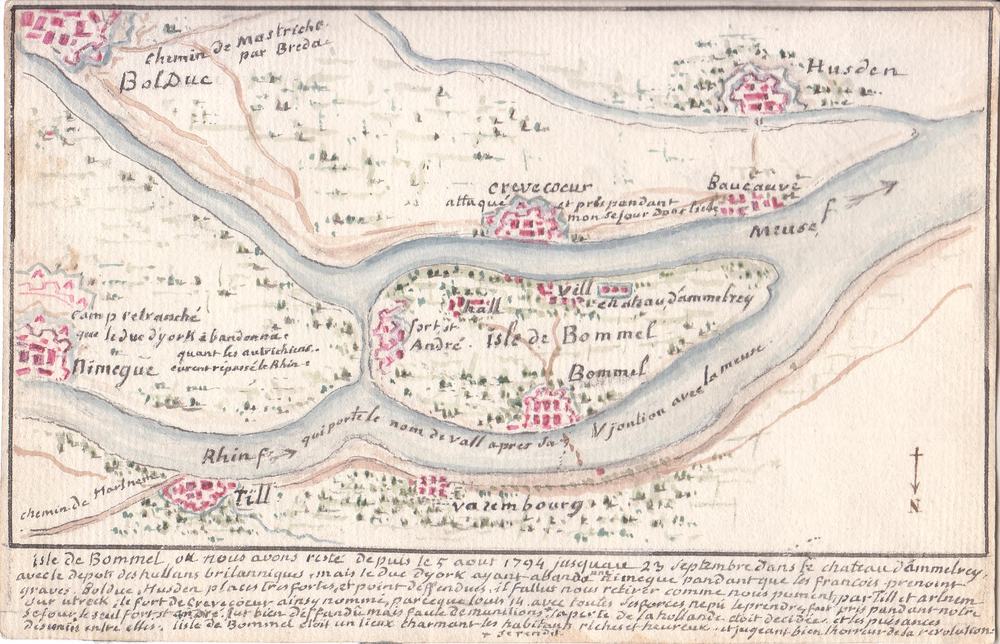 chemin de Mastricht
par Breda
BolDuc
Husden
crevecoeur
attaqué et pris pendant
mon sejour dooslicte
Baucauve
Meuse f
camp retranché
que le duc d'york abandonna
quant les autrichiens
eurent repassé le Rhin
Nimegue
hall
vill
chateau d'ammelrey
fort st
André
Isle de Bommel
Bommel
Rhin f qui porte le nom de vall apres sa Vjontion avec la meuse
chemin de
Till
varembourg
N
isle de Bommel ou nous avons resté depuis le 5 aout 1794 jusquau 23 septembre dans le chateau d'ammelrey
avec le depots des hullans britanniques, mais le duc d'york ayant abandonné nimeque pandant que les francois prenoint
graves, Bolduc, Husden places tres fortes, et point deffenduis, il fallus nous retirer comme nous pument, par Till et arlnem
sur utreck, le fort de Crevecoeur ainsy nommé, parceque louis 14 avec toutes ses forces nepu le prendre, fut pris pandant notre
sejour, le seul fort st andré fut bien deffendu mais faute de munitions la perte de la hollande etoit decidée, et les puisances
desunies entre elles. lisle de Bommel etoit un lieux charmant les habitents riches et heureux, et jugeant bien l'horreur de la revolution
se rendit